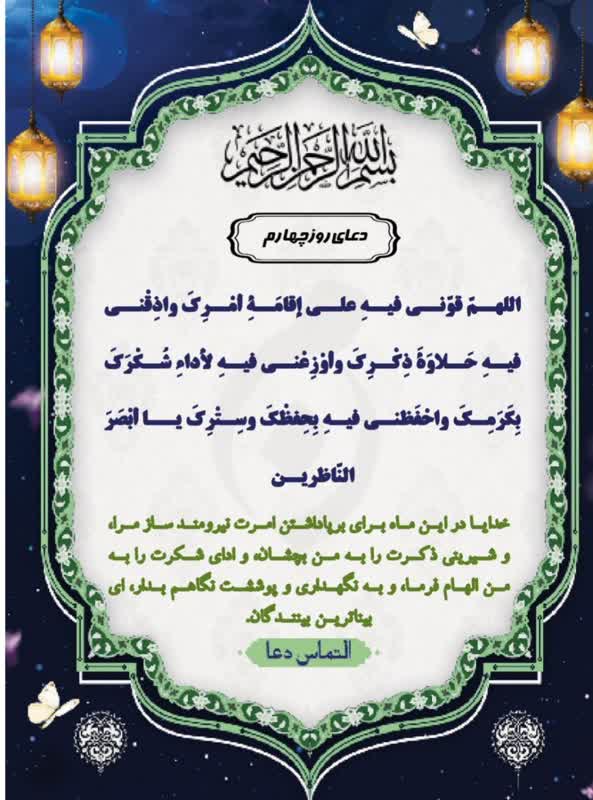 بسم الله الرحمن الرحیم
دعای روز چهارم
اللهـمّ قوّنـی فیـهِ علـی إقامَـةِ أمْـرِکَ واذِقْنـی
فیـهِ حَـلاوَةَ ذِکْـرِکَ وأوْزِعْنـی فیـهِ لأداءِ شُـکْرَکَ
بِکَرَمِـکَ واحْفَظنـی فیـهِ بِحِفظْکَ وسِـتْرِکَ یـا أبْصَرَ
النّاظریـن
خدایـا در ایـن مـاه بـرای برپاداشتن امـرت نیرومنـد سـاز مـرا،
و شـیرینی ذکـرت را بـه مـن بچشـان، و ادای شـکرت را بـه
مـن الهـام فرمـا، و بـه نگهـداری و پوششـت نگاهـم بـدار، ای
بیناتریـن بیننـدگان.
التماس دعا